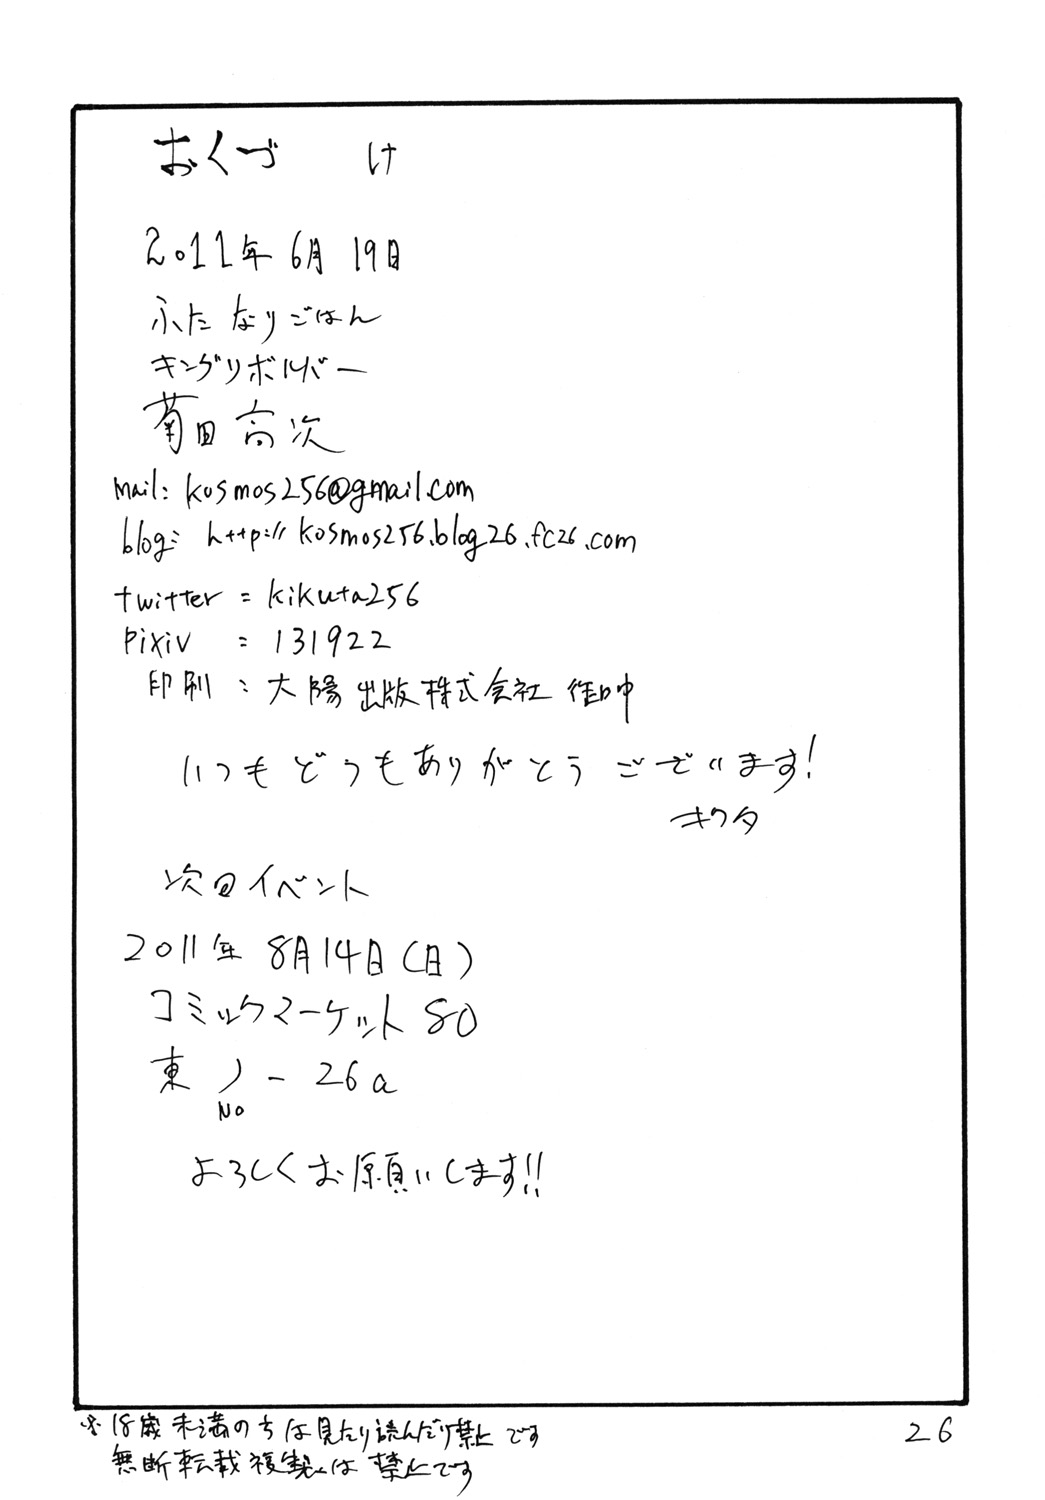 おくづけ
2011年6月19日
ふたなりごはん
キングリボルバー
菊田高次
mail: kosmos256@gmail.com
blog: http://kosmos256.blog26.fc26.com
twitter = kikuta256
pixiv : 131922
印刷 : 大陽出版株式会社 御中
いつもどうもありがとうございます!
キクタ
次回イベント
2011年 8月14日(日)
コミックマーケット80
東 ノ - 26a
NO
よろしくお願いします!!
※18歳未満の方は見たり読んだり禁止です
無断転載複製は禁止です
26